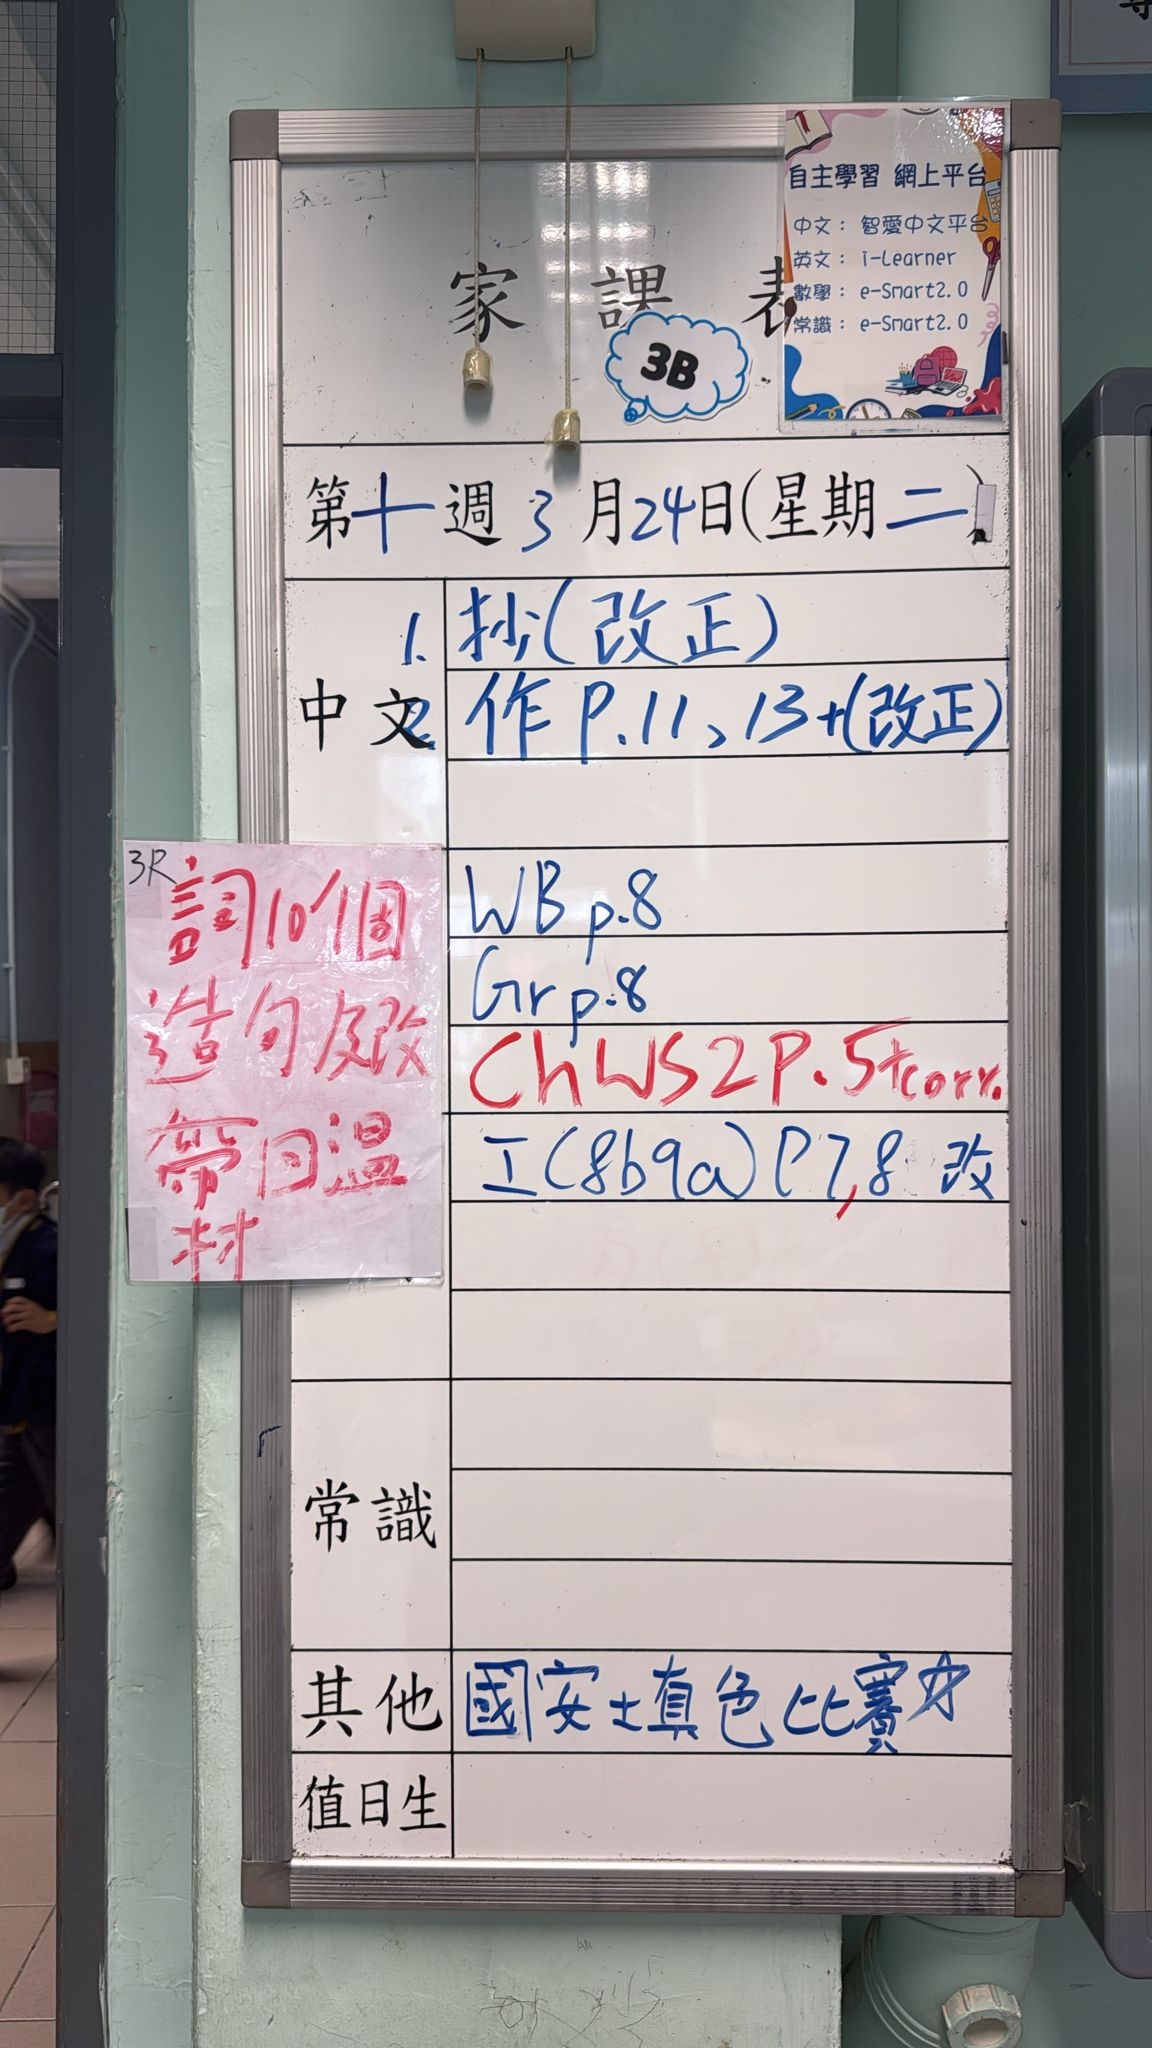 自主學習 網上平台
中文： 智愛中文平台
英文： i-Learner
數學： e-Smart2.0
常識： e-Smart2.0
家 課 表
3B
第十週 3月24日(星期二)
中文
1. 抄(改正)
2. 作 P.11、13+(改正)
WB p.8
Gr p.8
Ch WS2 P.5+corr.
工(8b9a) P7,8 改
3R
詞10個
造句及改
帶回溫
材
常識
其他
國安填色比賽
值日生